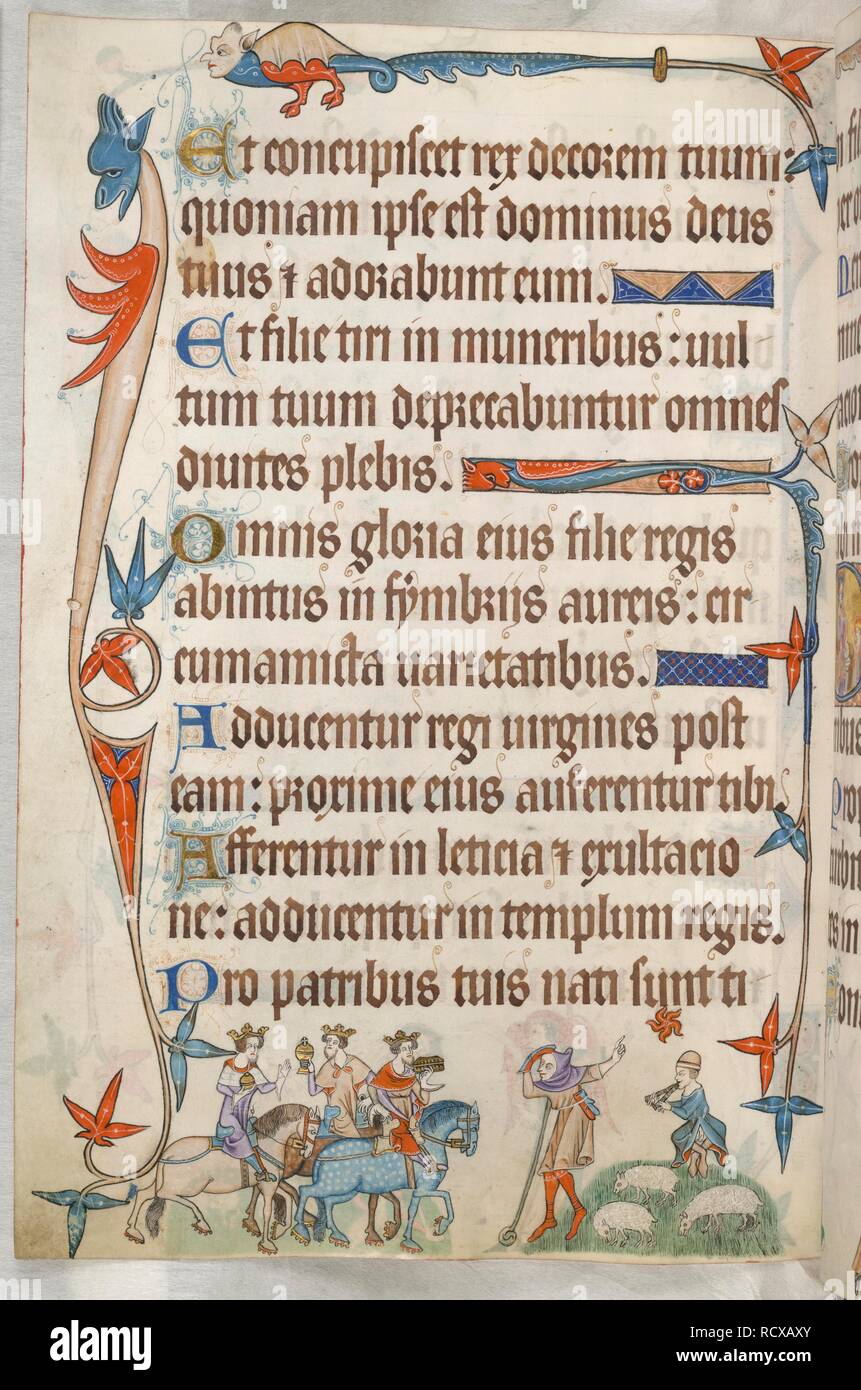 Et concupiscet rex decorem tuum:
quoniam ipse est dominus deus
tuus ⁊ adorabunt eum.
Et filie tiri in muneribus: uul
tum tuum deprecabuntur omnes
diuites plebis.
Omnis gloria eius filie regis
abintus in fymbrijs aureis: cir
cumamicta uarietatibus.
Adducentur regi uirgines post
eam: proxime eius auferentur tibi.
Afferentur in leticia ⁊ exultacio
ne: adducentur in templum regis.
Pro patribus tuis nati sunt ti
alamy
Image ID: RCXAXY
www.alamy.com